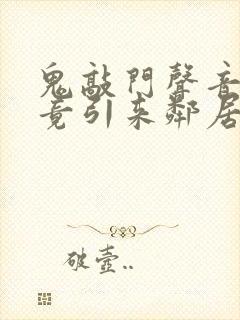 鬼敲門聲音
竟引來鄰居
破壺..